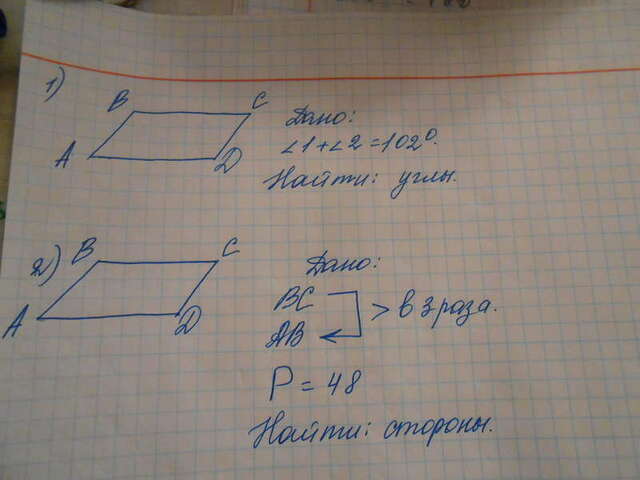 1)
B C
A D
Дано:
∠1+∠2=102°.
Найти: углы.
2)
B C
A D
Дано:
BC
AB > в 3 раза.
P = 48
Найти: стороны.